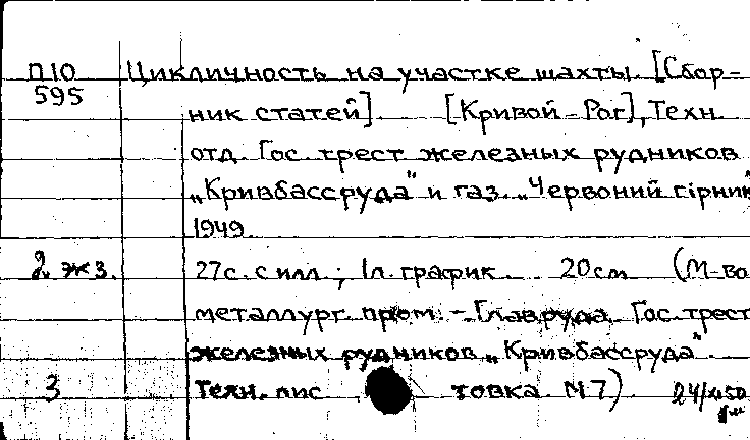 П10 Цикличность на участке шахты. [Сбор-
595
ник статей]. [Кривой-Рог], Техн.
отд. Гос. трест железных рудников
„Кривбассруда" и газ. „Червоний гірник
1949.
2 экз. 27с. с илл.; 1л. график. 20см (М-во
металлург. пром. - Главруда. Гос. трест
железных рудников „Кривбассруда".
3 Техн. лис товка №7) 24/XI 50